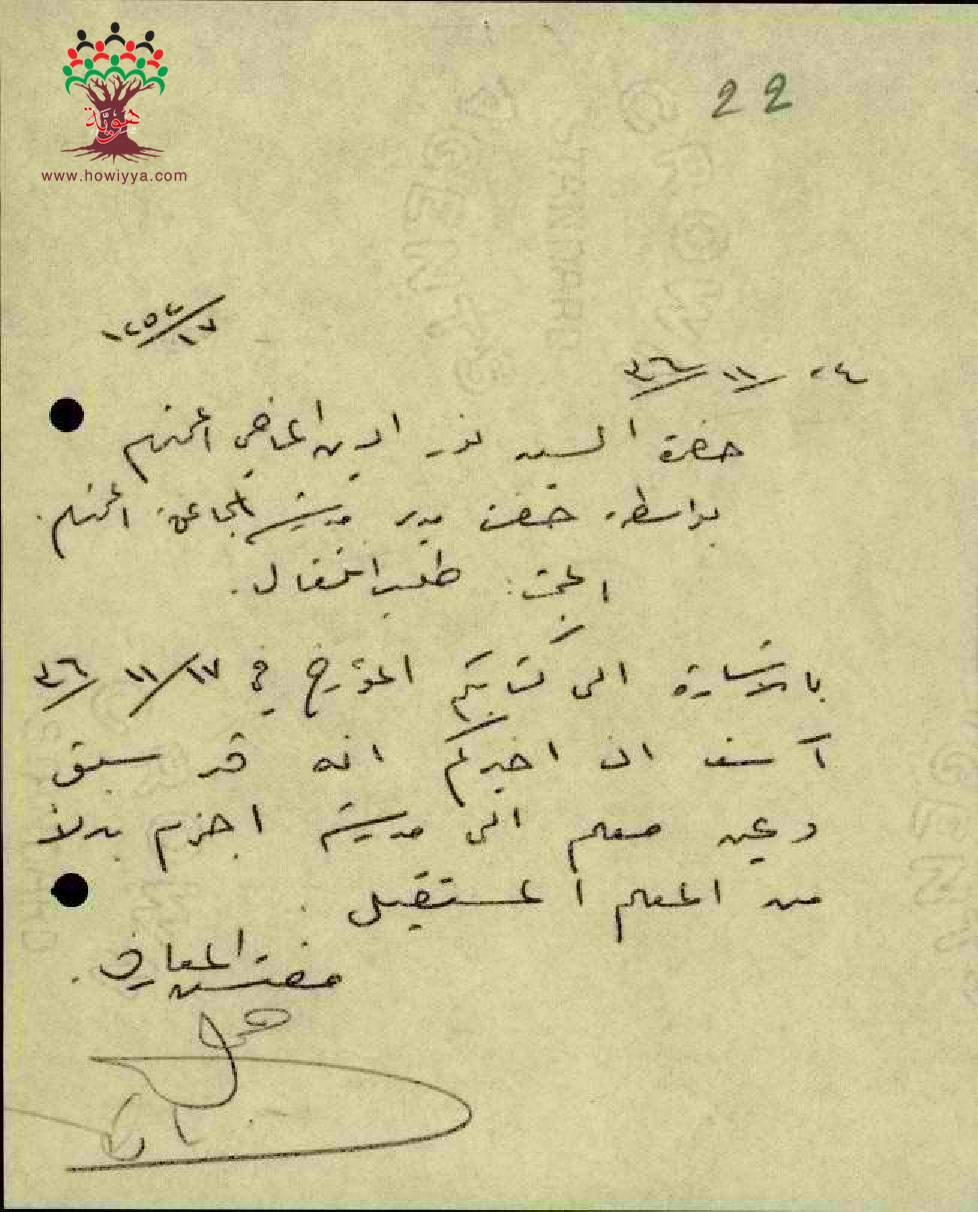 هوية
www.howiyya.com
22
١٢٥٢/١٧
٢٤/١١/٣٦
حضرة السيد نور الدين الماضي المحترم
بواسطة حضرة مدير مدرسة المحترم.
البحث: طلب انتقال.
بالاشارة الى كتابكم المؤرخ في ١٧/١١/٣٦
آسف ان اخبركم انه قد سبق
وعين معلم الى مدرسة اجزم بدلاً
من المعلم المستقيل.
مفتش المعارف.